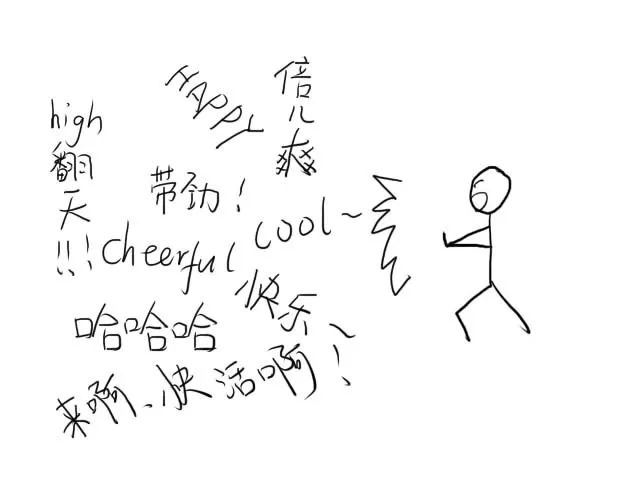 HAPPY
倍儿爽
high翻天!!!
带劲！
cheerful
cool~
快乐~
哈哈哈
来啊、快活啊！